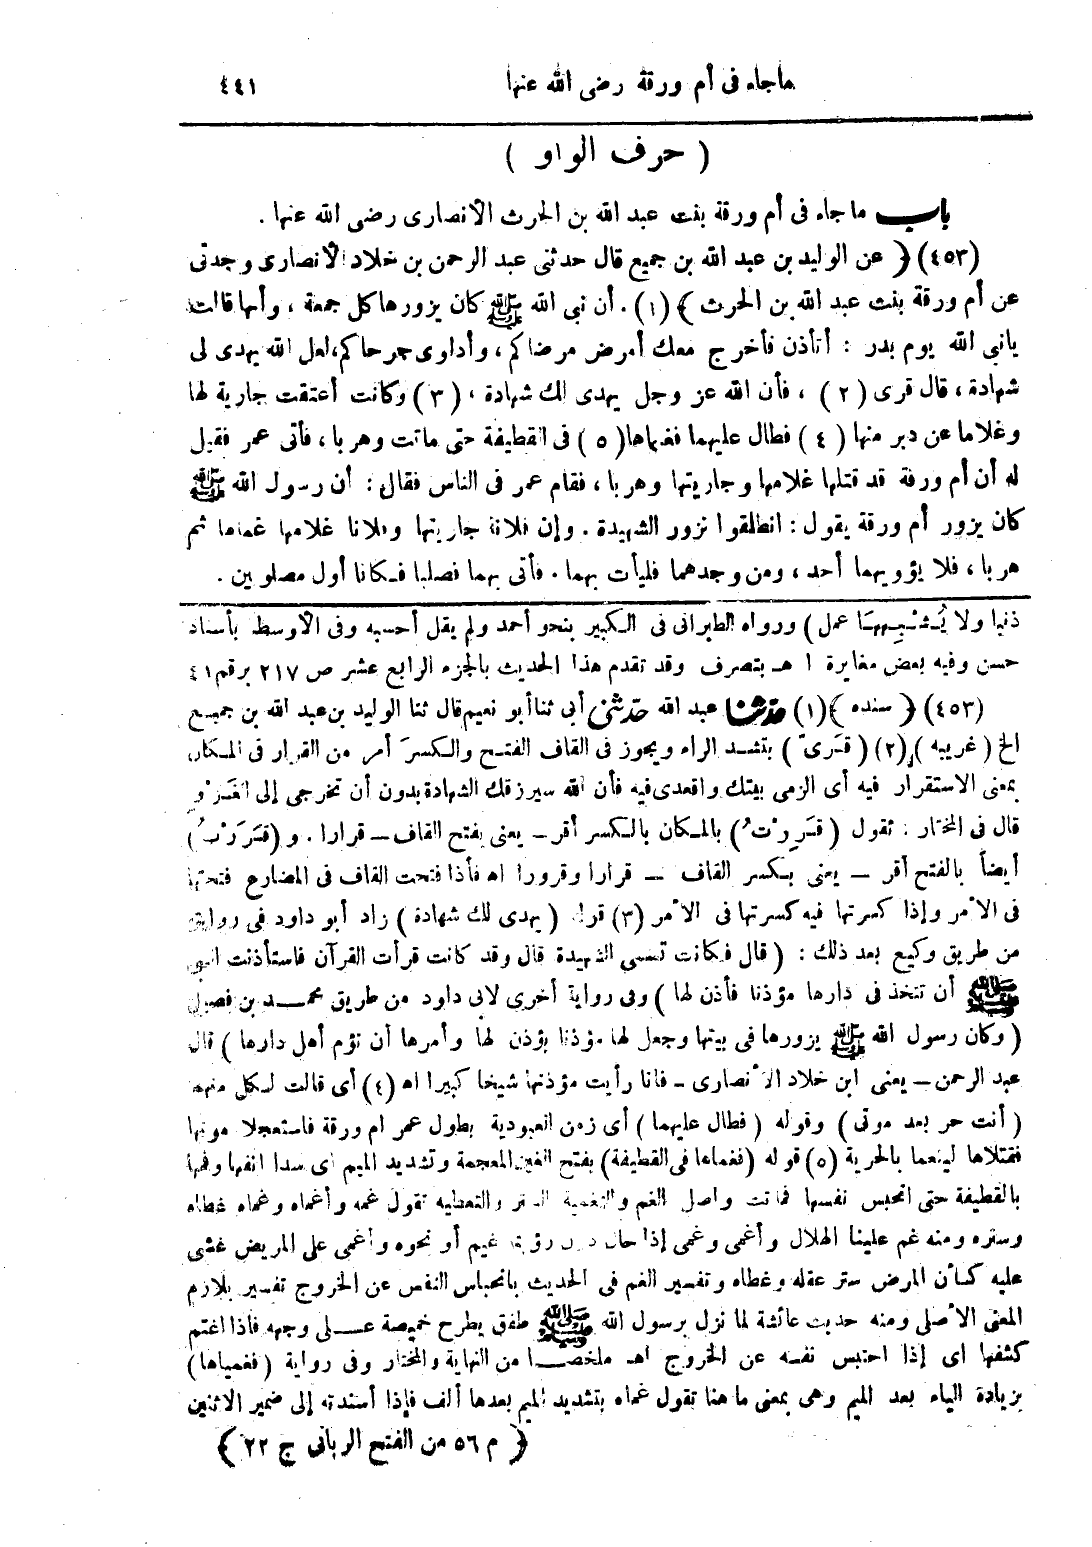 ماجاء فى أم ورقة رضى الله عنها ٤٤١
( حرف الواو )
باب ماجاء فى أم ورقة بنت عبد الله بن الحرث الأنصارى رضى الله عنها .
(٤٥٣) ﴿ عن الوليد بن عبد الله بن جميع قال حدثنى عبد الرحمن بن خلاد الأنصارى وجدتى
عن أم ورقة بنت عبد الله بن الحرث ﴾ (١) . أن نبى الله ﷺ كان يزورها كل جمعة ، وأنها قالت
يانبى الله يوم بدر : أتأذن فأخرج معك أمرض مرضاكم ، وأداوى جرحاكم، لعل الله يهدى لى
شهادة ، قال قرى (٢) ، فأن الله عز وجل يهدى لك شهادة ، (٣) وكانت أعتقت جارية لها
وغلاما عن دبر منها (٤) فطال عليهما فغماها (٥) فى القطيفة حتى ماتت وهربا ، فأتى عمر فقيل
له أن أم ورقة قد قتلها غلامها وجاريتها وهربا ، فقام عمر فى الناس فقال : أن رسول الله ﷺ
كان يزور أم ورقة يقول : انطلقوا نزور الشهيدة . وإن فلانة جاريتها وفلانا غلامها غماها ثم
هربا ، فلا يؤويهما أحد ، ومن وجدهما فليأت بهما . فأتى بهما فصلبا فكانا أول مصلوبين .
ذنبا ولا يُشْبِهُهَا عمل ) ورواه الطبرانى فى الكبير بنحو أحمد ولم يقل أحسبه وفى الأوسط بأسناد
حسن وفيه بعض مغايرة ا هـ بتصرف وقد تقدم هذا الحديث بالجزء الرابع عشر ص ٢١٧ برقم ٤١
(٤٥٣) ﴿ سنده ﴾ (١) حدثنا عبد الله حدثنى أبى ثنا أبو نعيم قال ثنا الوليد بن عبد الله بن جميع
الخ ( غريبه ) (٢) ( قَرىّ ) بتشد الراء ويجوز فى القاف الفتح والكسر أمر من القرار فى المكان
بمعنى الاستقرار فيه أى الزمى بيتك واقعدى فيه فأن الله سيرزقك الشهادة بدون أن تخرجى إلى الغَزْو
قال فى المختار : تقول ( قَرِرْتُ ) بالمكان بالكسر أقر – يعنى بفتح القاف – قرارا . و ( قَرَرْتُ )
أيضاً بالفتح أقر – يعنى بكسر القاف – قرارا وقرورا اه فأذا فتحت القاف فى المضارع فتحتها
فى الأمر وإذا كسرتها فيه كسرتها فى الأمر (٣) قوله ( يهدى لك شهادة ) زاد أبو داود فى رواية
من طريق وكيع بعد ذلك : ( قال فكانت تسمى الشهيدة قال وقد كانت قرأت القرآن فاستأذنت النبى
ﷺ أن تتخذ فى دارها مؤذنا فأذن لها ) وفى رواية أخرى لابى داود من طريق محمد بن فضيل
( وكان رسول الله ﷺ يزورها فى بيتها وجعل لها مؤذنا يؤذن لها وأمرها أن تؤم أهل دارها ) قال
عبد الرحمن – يعنى ابن خلاد الأنصارى – فانا رأيت مؤذنها شيخا كبيرا اه (٤) أى قالت لكل منهما
( أنت حر بعد موتى ) وقوله ( فطال عليهما ) أى زمن العبودية بطول عمر ام ورقة فاستعجلا موتها
فقتلاها لينعما بالحرية (٥) قوله (فغماها فى القطيفة) بفتح الغين المعجمة وتشديد الميم اى سدا انفها وفمها
بالقطيفة حتى انحبس نفسها فماتت واصل الغم والتغمية الستر والتعطيه تقول غمه وأغماه وغماه غطاه
وستره ومنه غم علينا الهلال وأغمى وغمى إذا حال دون رؤيته غيم أو نحوه وأغمى على المريض غشى
عليه كأن المرض ستر عقله وغطاه وتفسير الغم فى الحديث بانحباس النفس عن الخروج تفسير بلازم
المعنى الأصلى ومنه حديث عائشة لما نزل برسول الله ﷺ طفق يطرح خميصة على وجهه فأذا اغتم
كشفها اى إذا احتبس نفسه عن الخروج اهـ ملخصا من النهاية والمختار وفى رواية ( فغمياها )
بزيادة الياء بعد الميم وهى بمعنى ما هنا تقول غماه بتشديد الميم بعدها ألف فإذا أسندته إلى ضمير الاثنين
﴿ م ٥٦ من الفتح الربانى ج ٢٢ ﴾